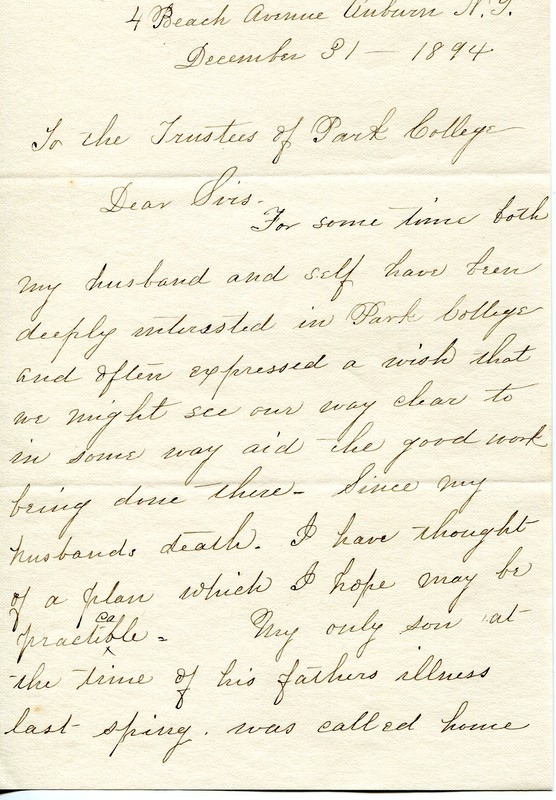 4 Beach Avenue Auburn N.Y.
December 31 — 1894
To the Trustees of Park College
Dear Sirs.
For some time both
my husband and self have been
deeply interested in Park College
and often expressed a wish that
we might see our way clear to
in some way aid the good work
being done there - Since my
husbands death. I have thought
of a plan which I hope may be
ca
practible = My only son at
the time of his fathers illness
last spring. was called home